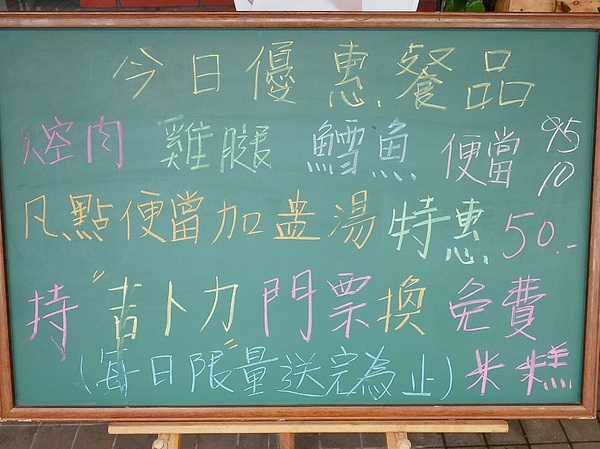 今日優惠餐品
焢肉 雞腿 鱈魚 便當 95
10
凡點便當加盅湯 特惠 50.-
持"吉卜力"門票換免費
(每日限量送完為止) 米糕